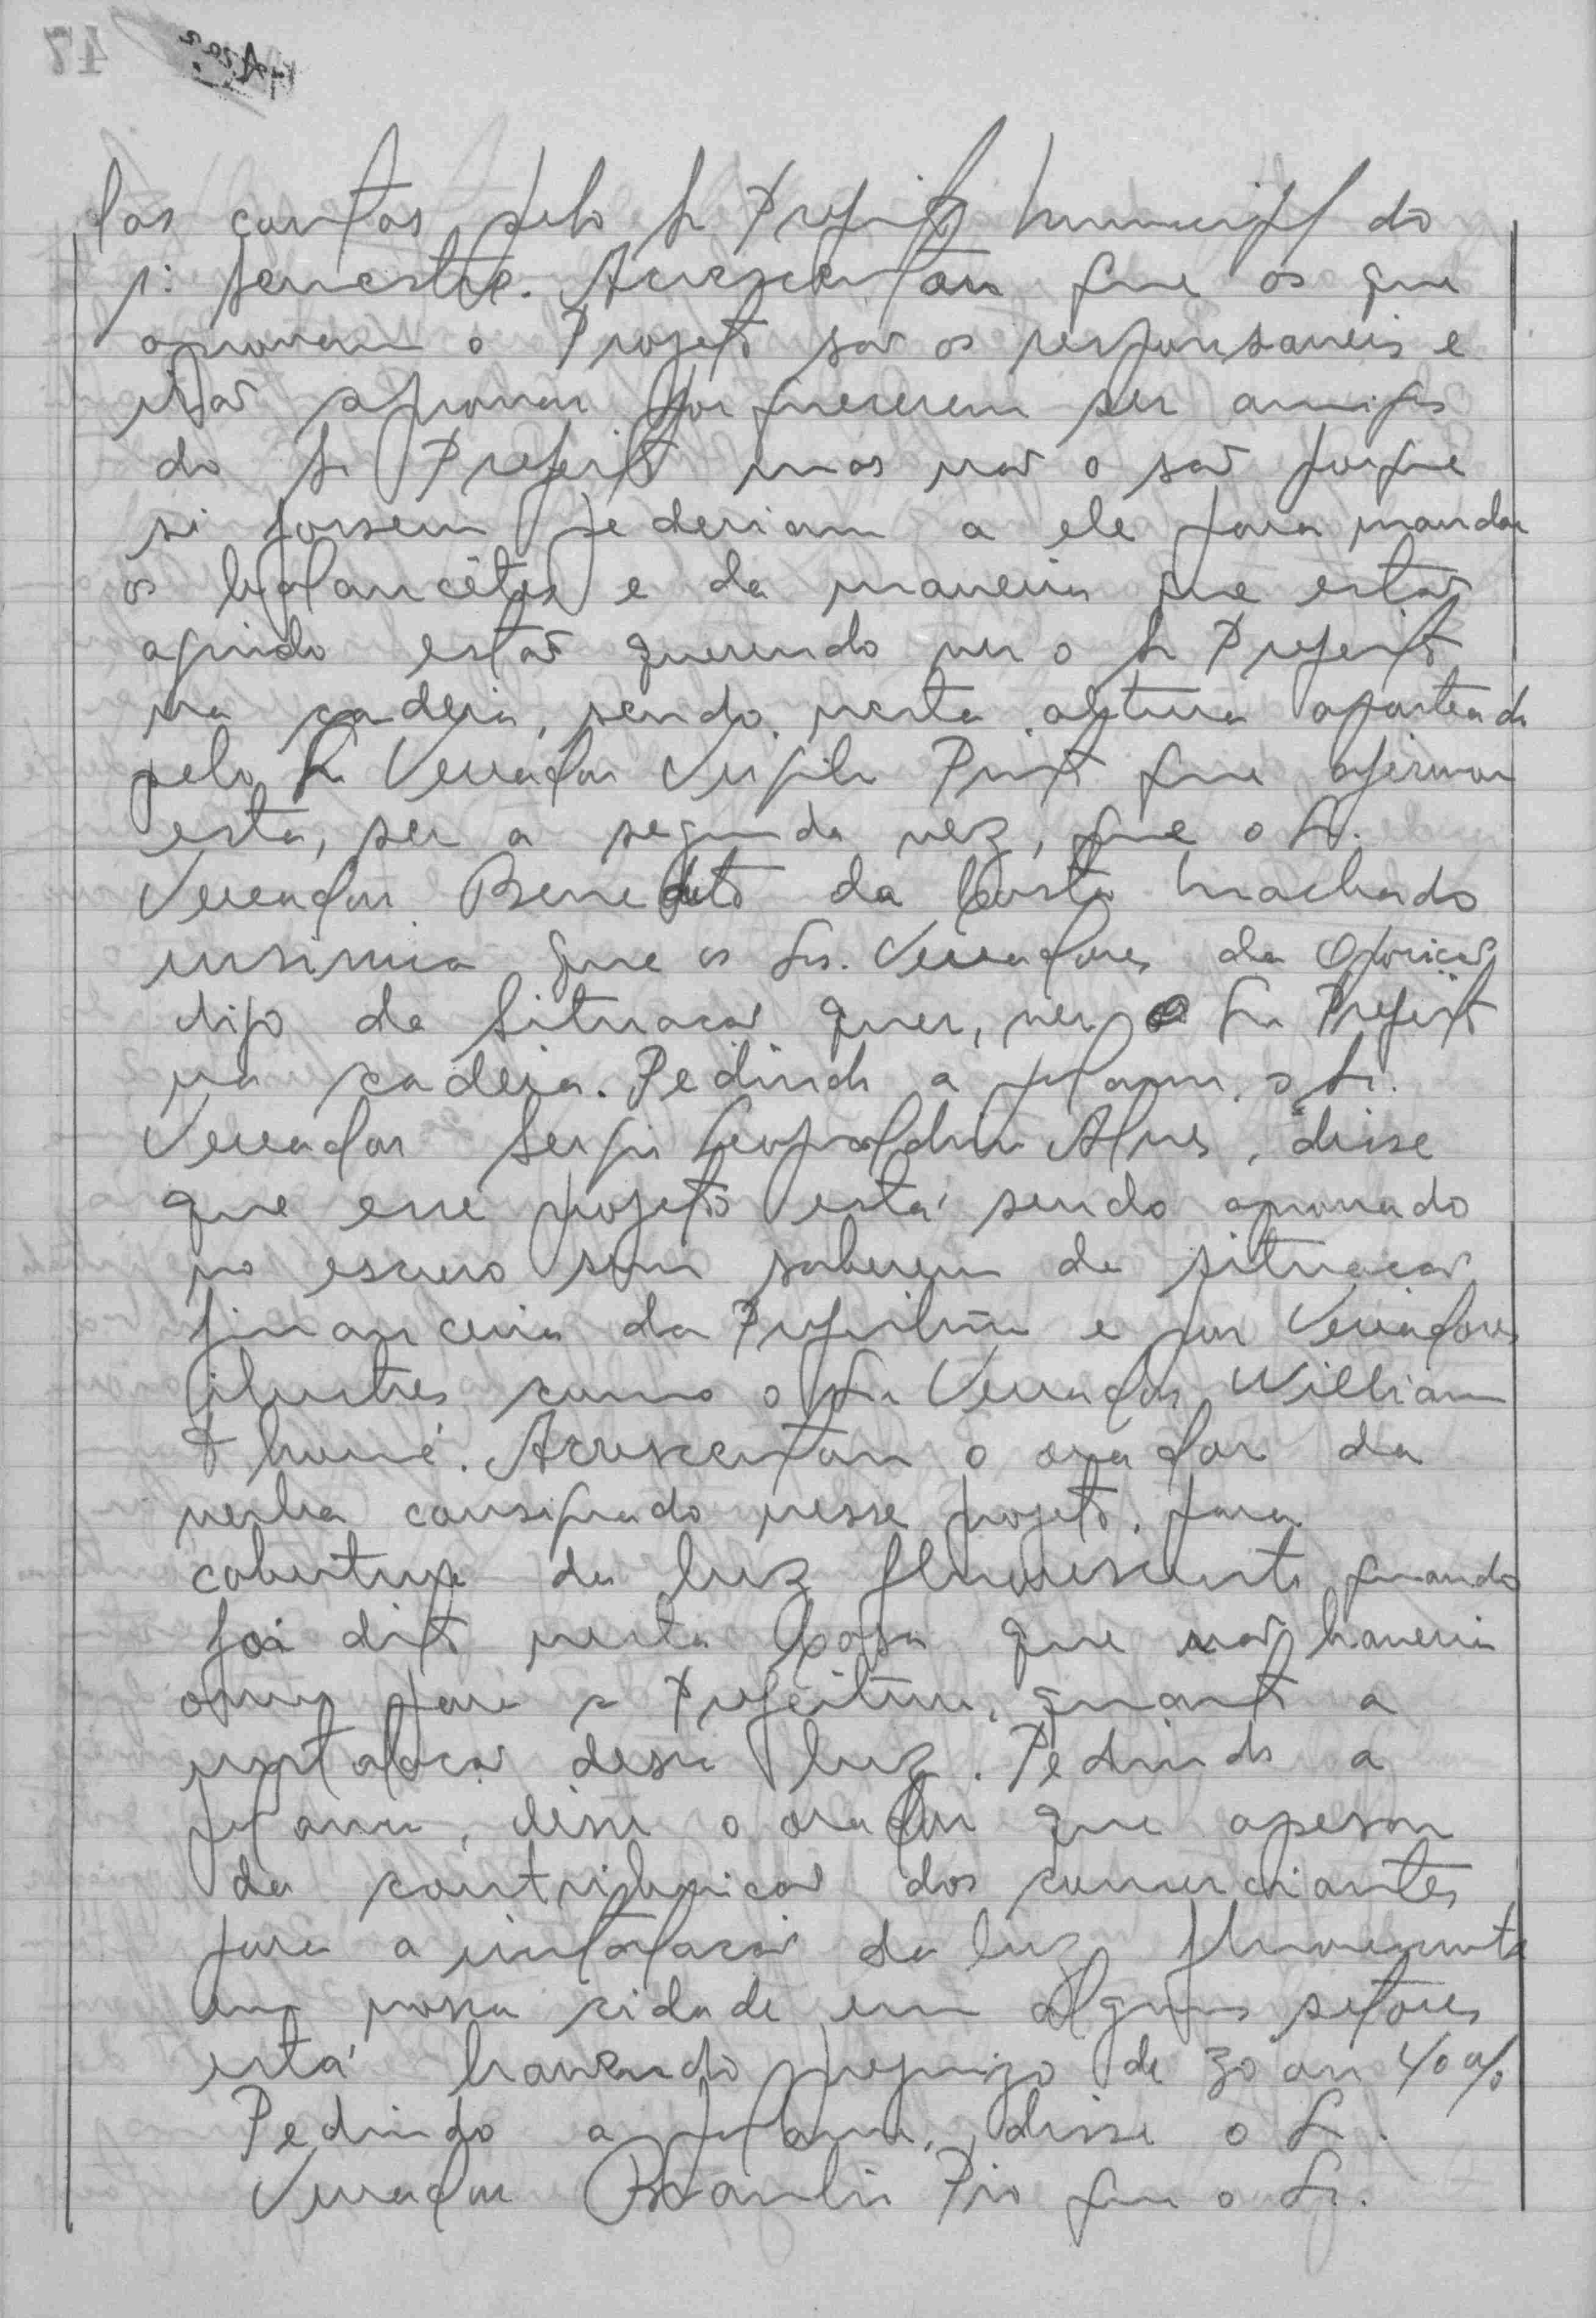 das contas pelo Sr Prefeito Municipal do
1º semestre. Acrescentou que os que
aprovam o Projeto são os responsaveis e
irão aprovar por quererem ser amigos
do Sr Prefeito mas não o são porque
si fossem pederiam a ele para mandar
os balancêtes e da maneira que estão
agindo estão querendo ver o Sr Prefeito
na cadeia, sendo nesta altura aparteado
pelo Sr Vereador Virgilio Pinto que afirmou
esta, ser a segunda vez, que o Sr.
Vereador Benedito da Costa Machado
insinua que os Srs. Vereadores da Oposicão
digo da Situacão quer, ver o Sr Prefeito
na cadeia. Pedindo a palavra, o Sr.
Vereador Sergio Leopoldino Alves, disse
que esse projeto está sendo aprovado
no escuro sem saberem da situacão
financeira da Prefeitura e por Vereadores
ilustres como o Sr Vereador William
Thomé. Acrescentou o orador da
verba consignado nesse projeto para
cobertura da luz fluorescente quando
foi dito nesta Casa que não haveria
onus para a Prefeitura, quanto a
instalacão dessa luz. Pedindo a
palavra, disse o orador que apesar
da contribuicão dos comerciantes
para a instalacão da luz fluorescente
em nossa cidade em alguns setores
está havendo prejuizo de 30 ou 40%
Pedindo a palavra, disse o Sr.
Vereador Braulio Pio que o Sr.